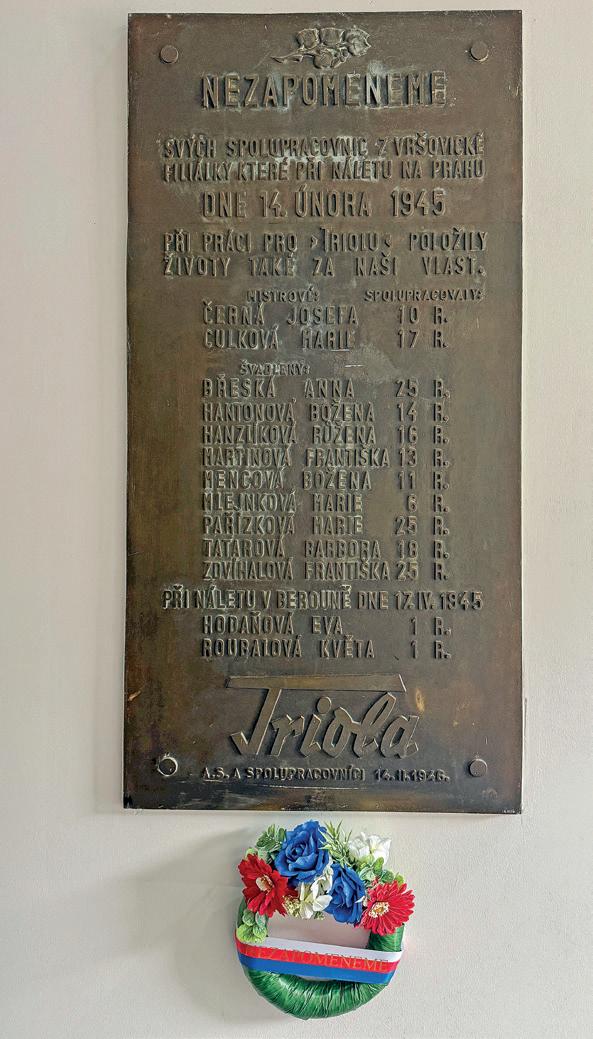 NEZAPOMENEME
SVÝCH SPOLUPRACOVNIC Z VRŠOVICKÉ
FILIÁLKY KTERÉ PŘI NÁLETU NA PRAHU
DNE 14. ÚNORA 1945
PŘI PRÁCI PRO >TRIOLU< POLOŽILY
ŽIVOTY TAKÉ ZA NAŠI VLAST.
MISTROVÉ: SPOLUPRACOVALY:
ČERNÁ JOSEFA 10 R.
CULKOVÁ MARIE 17 R.
ŠVADLENY:
BŘESKÁ ANNA 25 R.
HANTONOVÁ BOŽENA 14 R.
HANZLÍKOVÁ RŮŽENA 16 R.
MARTINOVÁ FRANTIŠKA 13 R.
MENCOVÁ BOŽENA 11 R.
MLEJNKOVÁ MARIE 6 R.
PAŘÍZKOVÁ MARIE 25 R.
TATAROVÁ BARBORA 18 R.
ZOVÍHALOVÁ FRANTIŠKA 25 R.
PŘI NÁLETU V BEROUNĚ DNE 17. IV. 1945
HODAŇOVÁ EVA 1 R.
ROUBALOVÁ KVĚTA 1 R.
Triola
A.S. A SPOLUPRACOVNÍCI 14.II.1946.
NEZAPOMENEME